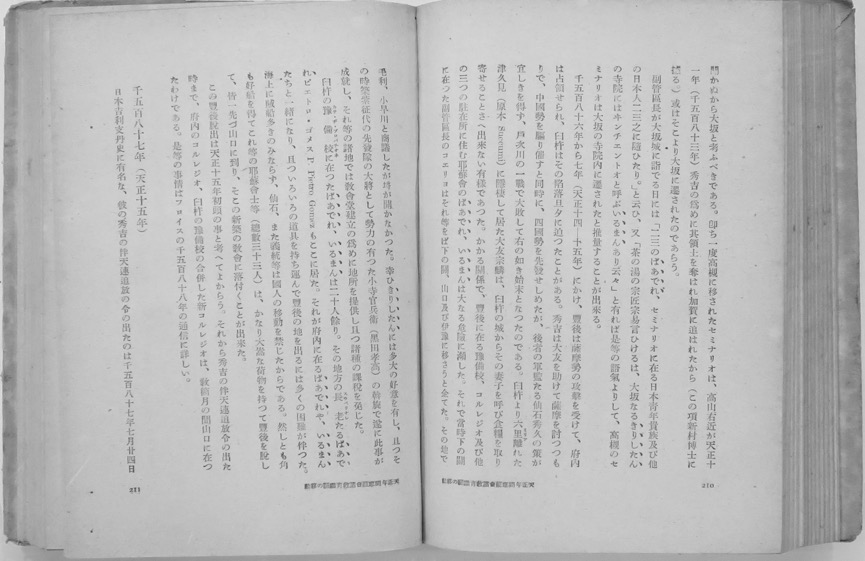 聞かぬから大坂と考ふべきである。卽ち一度高槻に移されたセミナリオは、高山右近が天正十
一年（千五百八十三年）秀吉の爲めに其領土を奪はれ加賀に追はれたから（この項新村博士に
據る）或はそこより大坂に遷されたのであらう。
副管區長が大坂城に詣でる日には「二三のぱあでれ、セミナリオに在る日本青年貴族及び他
の日本人二三之に隨ひたり。」と云ひ、又「茶の湯の宗匠宗易言ひけるは、大坂なるきりしたん
の寺院にはキンチエントオと呼ぶいるまんあり云々」と有れば是等の語氣よりして、高槻のセ
ミナリオは大坂の寺院内に遷されたと推量することが出來る。
千五百八十六年から七年（天正十四―十五年）にかけ、豐後は薩摩勢の攻擊を受けて、府内
は占領せられ、臼杵はその陷落旦夕に迫つたことがある。秀吉は大友を助けて薩摩を討つつも
りで、中國勢を驅り催すと同時に、四國勢を先發せしめたが、後者の軍監たる仙石秀久の策が
宜しきを得ず、戶次川の一戰で大敗して右の如き始末となつたのである。臼杵より六里離れた
津久見（原本 Sucumi）に隱棲して居た大友宗麟は、臼杵の城からその妻子を呼び食糧を取り
寄せることさへ出來ない有樣であつた。かかる關係で、豐後に在る豫備校、コルレジオ及び他
の三つの駐在所に住む耶蘇會のぱあでれ、いるまんは大なる危險に瀕した。それで當時下の關
に在つた副管區長のコエリオはそれ等を下の關、山口及び伊豫に移さうと企てた。その地で
210
毛利、小早川と商議したが埓が開かなかつた。幸ひきりしたんには多大の好意を有し、且つそ
の時築紫征代の先發隊の大將として勢力の有つた小寺官兵衞（黑田孝高）の斡旋で遂に此事が
成就し、それ等の諸地では敎會堂建立の爲めに地所を提供し且つ諸種の課稅を免じた。
臼杵の豫備校に在つたぱあでれ、いるまんは二十人餘り。その地方の長老たるぱあで
れ、ピエトロ・ゴメス P. Pietro Gomez もここに居た。それが府内に在るぱあでれや、いるまん
たちと一緖になり、且ついろいろの道具を持ち運んで豐後の地を出るには多くの困難が伴つた。
海上に賊船多きのみならず、仙石、また義統等は國人の移動を禁じたからである。然しとも角
も好船を得てこれ等の耶蘇會士等（總數三十三人）は、かなり大嵩な荷物を持つて豐後を脫し
て、皆一先づ山口に到り、そこの新築の敎會に落付くことが出來た。
この豐後脫出は天正十五年初頭の事と考へてよからう。それから秀吉の伴天連追放令の出た
時まで、府内のコルレジオ、臼杵の豫備校の合併した新コルレジオは、數箇月の間山口に在つ
たわけである。是等の事情はフロイスの千五百八十八年の通信に詳しい。
千五百八十七年（天正十五年）
日本吉利支丹史に有名な、彼の秀吉の伴天連追放令の出たのは千五百八十七年七月廿四日
211